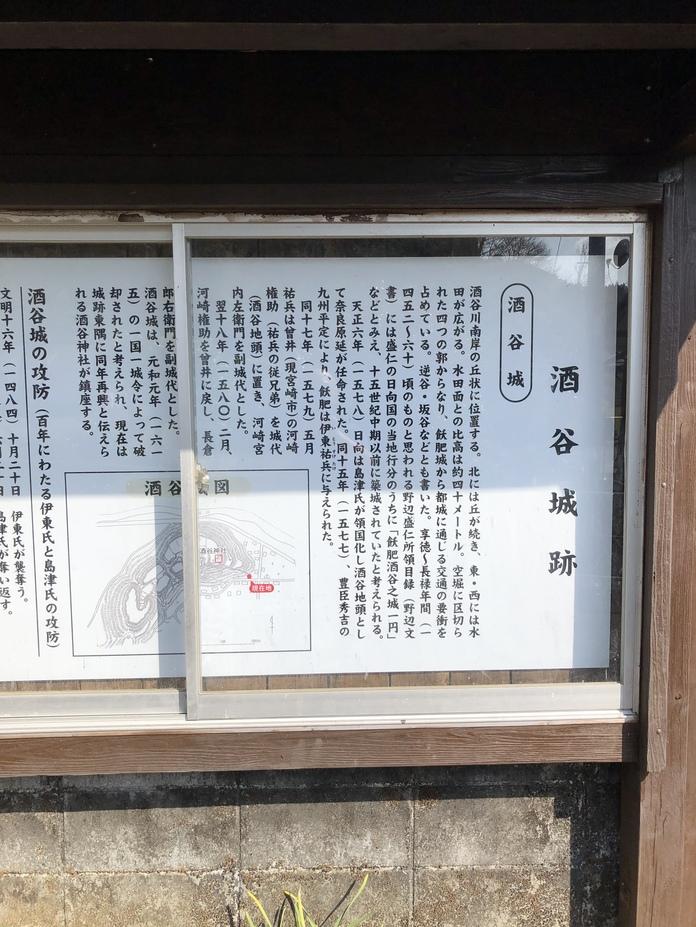 酒谷城跡
酒谷城
酒谷川南岸の丘状に位置する。北には丘が続き、東・西には水
田が広がる。水田面との比高は約四十メートル。空堀に区切ら
れた四つの郭からなり、飫肥城から都城に通じる交通の要衝を
占めている。逆谷・坂谷などとも書いた。享徳～長禄年間（一
四五二～六十）頃のものと思われる野辺盛仁所領目録（野辺文
書）には盛仁の日向国の当地行分のうちに「飫肥酒谷之城一円」
などとみえ、十五世紀中期以前に築城されていたと考えられる。
天正六年（一五七八）日向は島津氏が領国化し酒谷地頭とし
て奈良原延が任命された。同十五年（一五七七）、豊臣秀吉の
九州平定により、飫肥は伊東祐兵に与えられた。
同十七年（一五七九）五月
祐兵は曽井（現宮崎市）の河崎
権助（祐兵の従兄弟）を城代
（酒谷地頭）に置き、河崎宮
内左衛門を副城代とした。
翌十八年（一五八〇）二月、
河崎権助を曽井に戻し、長倉
郎右衛門を副城代とした。
酒谷城は、元和元年（一六一
五）の一国一城令によって破
却されたと考えられ、現在は
城跡東隅に同年再興と伝えら
れる酒谷神社が鎮座する。
酒谷 図
酒谷神社
現在地
酒谷城の攻防（百年にわたる伊東氏と島津氏の攻防）
文明十六年（一四八四 十月二十日 伊東氏が襲奪う。
島津氏が奪い返す。